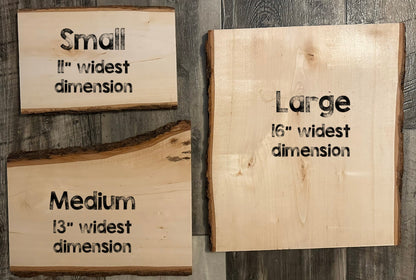 Small
11" widest
dimension
Medium
13" widest
dimension
Large
16" widest
dimension